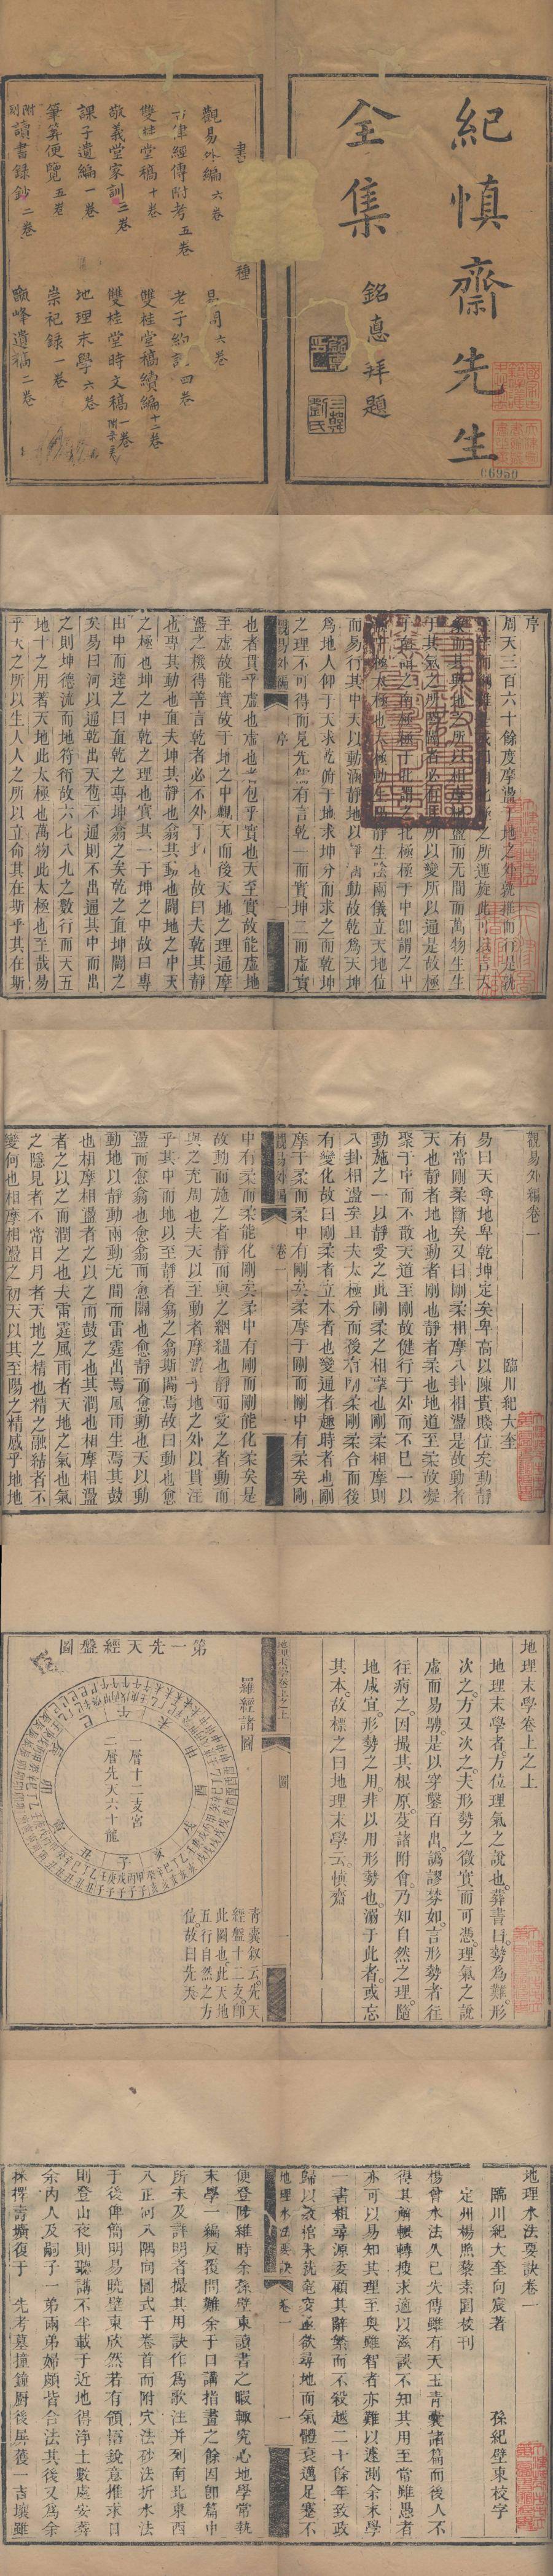 紀慎齋先生
全集
銘惪拜題
06950
書
種
觀易外編 六卷
易問 六卷
律經傳附考 五卷
老子約說 四卷
雙桂堂稿 十卷
雙桂堂稿續編 十二卷
敬義堂家訓 三卷
雙桂堂時文稿 一卷
課子遺編 一卷
地理末學 六卷
筆筭便覽 五卷
崇祀錄 一卷
附刻讀書錄鈔 二卷
顒峰遺稿 二卷
序
周天三百六十餘度摩盪于地之外
而易行其中天以動涵靜地以靜涵動故乾爲天坤
爲地人仰于天求乾俯于地求坤分而求之而乾坤
之理不可得而見先儒有言乾一而實坤二而虛實
觀易外編
序
一
也者貫乎虛也虛也者包乎實也天至實故能虛地
至虛故能實故于地之中觀天而後天地之理通摩
盪之機得善言乾者必不外于坤也故曰夫乾其靜
也專其動也直夫坤其靜也翕其動也闢地之中天
之極也坤之中乾之理也實其一于坤之中故曰專
由中而達之曰直乾之專坤翕之矣乾之直坤闢之
矣易曰河以通乾出天苞不通則不出通其中而出
之則坤德流而地符衍故六七八九之數行而天五
地十之用著天地此太極也萬物此太極也至哉易
乎天之所以生人人之所以立命其在斯乎其在斯
觀易外編卷一
臨川紀大奎
易曰天尊地卑乾坤定矣卑高以陳貴賤位矣動靜
有常剛柔斷矣又曰剛柔相摩八卦相盪是故動者
天也靜者地也動者剛也靜者柔也地道至柔故凝
聚于中而不散天道至剛故健行于外而不已一以
動施之一以靜受之此剛柔之相摩也剛柔相摩則
八卦相盪矣且夫太極分而後有剛柔剛柔合而後
有變化故曰剛柔者立本者也變通者趣時者也剛
摩于柔而柔中有剛矣柔摩于剛而剛中有柔矣剛
觀易外編
卷一
一
中有柔而柔能化剛矣柔中有剛而剛能化柔矣是
故動而施之者靜而與之絪縕也靜而受之者動而
與之充周也夫天以至動者摩盪乎地之外以貫注
乎其中而地以至靜者翕之翕斯闢焉故曰動也愈
盪而愈翕也愈翕而愈闢也愈靜而愈動也天以動
動地以靜動兩動无間而雷霆出焉風雨生焉其鼓
也相摩相盪者之以之而鼓之也其潤也相摩相盪
者之以之而潤之也夫雷霆風雨者天地之氣也氣
之隱見者不常日月者天地之精也精之融結者不
變何也相摩相盪之初天以其至陽之精感乎地地
地理末學卷上之上
地理末學者方位理氣之說也葬書曰勢爲難形
次之方又次之夫形勢之徵實而可憑理氣之說
虛而易騁是以穿鑿百出譌謬棼如言形勢者往
往病之因撮其根原芟諸附會乃知自然之理隨
地咸宜形勢之用非以用形勢也溺于此者或忘
其本故標之曰地理末學云慎齋
地理末學卷上之上
圖
一
羅經諸圖
第一先天經盤圖
一層十二支宮
二層先天六十龍
子
丑
寅
卯
辰
巳
午
未
申
酉
戌
亥
青囊叙云先天
經盤十二支卽
此圖也此天地
五行自然之方
位故曰先天
地理水法要訣卷一
臨川紀大奎向宸著
孫紀壁東校字
定州楊照藜素園校刊
楊曾水法久已失傳雖有天玉青囊諸篇而後人不
得其解輾轉搜求適以滋誤不知其用至當雖愚者
亦可以易知其理至奧雖智者亦難以遽測余末學
一書粗尋源委顧其辭繁而不殺越二十餘年致政
歸以救棺未就窀穸亟欲尋地而氣體衰邁足蹇不
地理水法要訣
卷一
一
便登陟維時余孫壁東讀書之暇輒究心地學常執
末學一編反覆問難余于口講指畫之餘因卽篇中
所未及詳明者撮其用訣作爲歌注并列南北東西
八正向八隅向圖式于卷首而附穴法砂法折水法
于後俾簡明易曉壁東欣然若有領悟銳意推求日
則登山夜則聽講不半載于近地得淨土數處安葬
余內人及嗣子一弟兩弟婦頗皆合法其後又爲余
採得壽壙復于 先考墓撞鐘廚後屏獲一吉壤雖